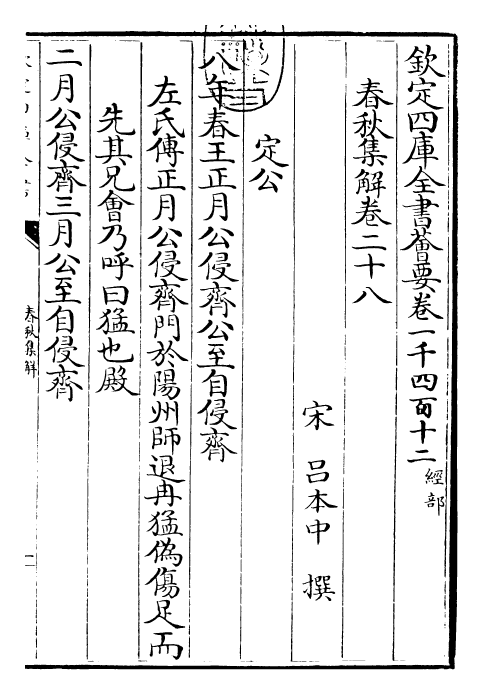 欽定四庫全書薈要卷一千四百十二 經部
春秋集解卷二十八
宋 呂本中 撰
定公
八年春王正月公侵齊公至自侵齊
左氏傳正月公侵齊門於陽州師退冉猛偽傷足而
先其兄會乃呼曰猛也殿
二月公侵齊三月公至自侵齊
春秋集解